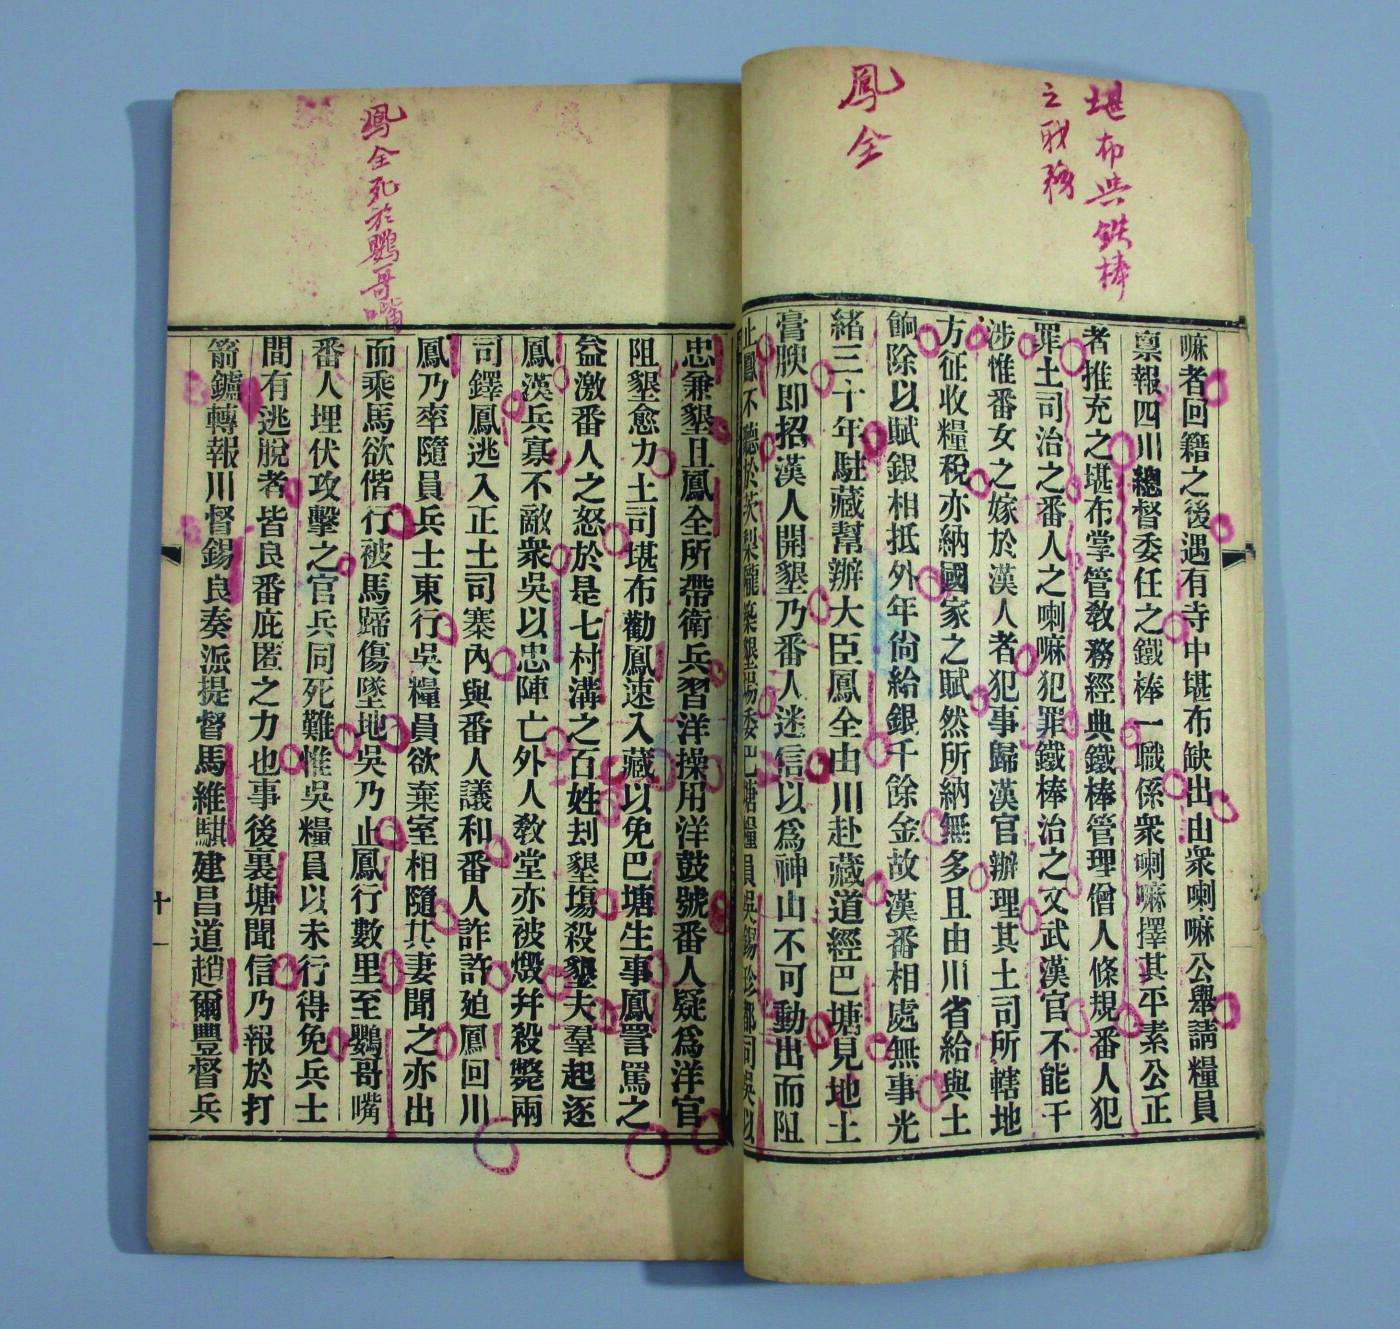 堪布與鉄棒
之職務
鳳全
嘛者回籍之後遇有寺中堪布缺出由衆喇嘛公舉請糧員
禀報四川總督委任之鐵棒一職係衆喇嘛擇其平素公正
者推充之堪布掌管教務經典鐵棒管理僧人條規番人犯
罪土司治之番人之喇嘛犯罪鐵棒治之文武漢官不能干
涉惟番女之嫁於漢人者犯事歸漢官辦理其土司所轄地
方征收糧稅亦納國家之賦然所納無多且由川省給與土
餉除以賦銀相抵外年尙給銀千餘金故漢番相處無事光
緒三十年駐藏幫辦大臣鳳全由川赴藏道經巴塘見地土
膏腴即招漢人開墾乃番人迷信以爲神山不可動出而阻
止鳳不聽於茨梨隴築墾場委巴塘糧員吳錫珍都司吳以
鳳全死於鸚哥嘴
忠兼墾且鳳全所帶衛兵習洋操用洋鼓號番人疑爲洋官
阻墾愈力土司堪布勸鳳速入藏以免巴塘生事鳳詈罵之
益激番人之怒於是七村溝之百姓刦墾塲殺墾夫羣起逐
鳳漢兵寡不敵衆吳以忠陣亡外人教堂亦被燬幷殺斃兩
司鐸鳳逃入正土司寨內與番人議和番人詐許廹鳳回川
鳳乃率隨員兵士東行吳糧員欲棄室相隨其妻聞之亦出
而乘馬欲偕行被馬蹄傷墜地吳乃止鳳行數里至鸚哥嘴
番人埋伏攻擊之官兵同死難惟吳糧員以未行得免兵士
間有逃脫者皆良番庇匿之力也事後裏塘聞信乃報於打
箭鑪轉報川督錫良奏派提督馬維騏建昌道趙爾豐督兵
十一